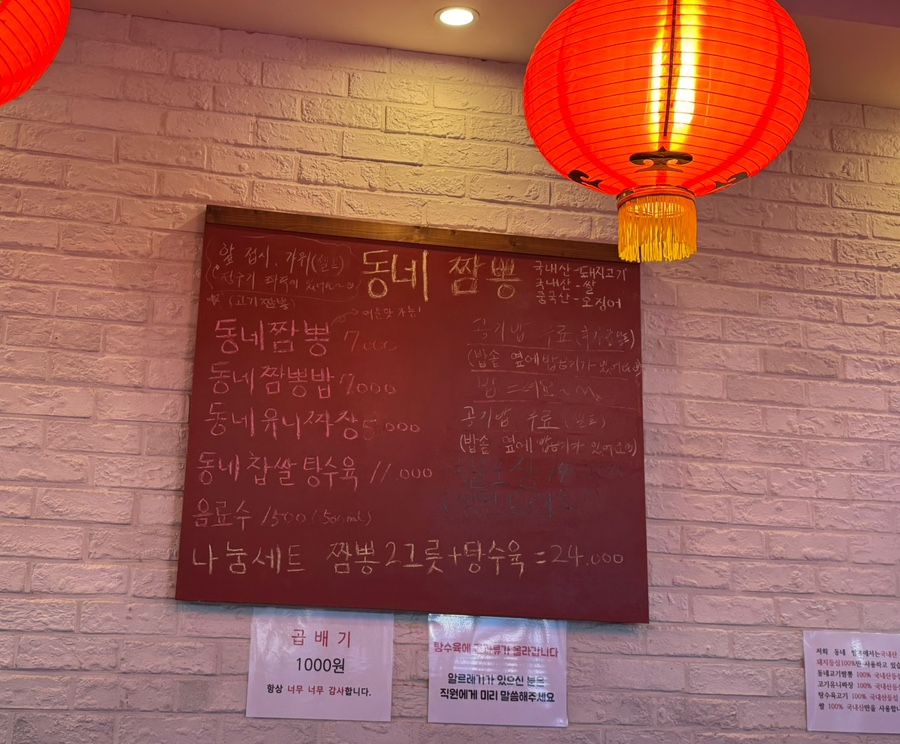 앞 접시, 가위
(고기짬뽕)
동네 짬뽕
국내산-돼지고기
국내산-쌀
중국산-오징어
동네짬뽕 7000
동네짬뽕밥 7000
동네유니짜장 5.000
동네찹쌀탕수육 11.000
음료수 1500 (500ml)
나눔세트 짬뽕2그릇+탕수육=24.000
공기밥 무료
(밥솥 옆에 밥공기가 있어요)
공기밥 무료
(밥솥 옆에 밥공기가 있어요)
곱배기
1000원
항상 너무 너무 감사합니다.
탕수육에 올라간다
알르래기가 있으신 분은
직원에게 미리 말씀해주세요
저희 동네 국내산
돼지등심100%만 사용하고
동네고기짬뽕 100% 국내산등심
고기유니짜장 100% 국내산등심
탕수육고기 100% 국내산등심
쌀 100% 국내산만을 사용합니